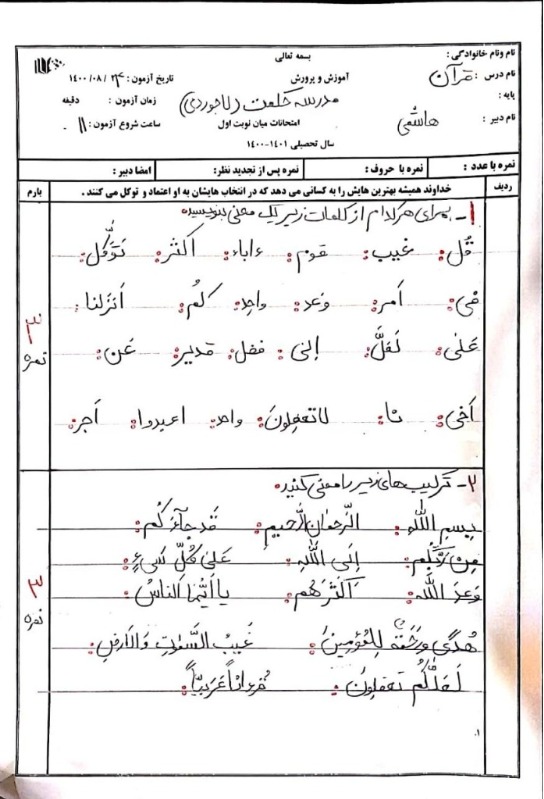 بسمه تعالی
نام ونام خانوادگی :
نام درس : قرآن
آموزش و پرورش
تاریخ آزمون : ۲۴ / ۰۸ / ۱۴۰۰
پایه :
مدرسه حکمت (لاجوردی)
زمان آزمون : دقیقه
نام دبیر : هاشمی
امتحانات میان نوبت اول
ساعت شروع آزمون : ۱۱
سال تحصیلی ۱۴۰۱-۱۴۰۰
نمره با عدد : نمره با حروف : نمره پس از تجدید نظر: امضا دبیر :
ردیف خداوند همیشه بهترین هایش را به کسانی می دهد که در انتخاب هایشان به او اعتماد و توکل می کنند . بارم
۱- برای هر کدام از کلمات زیر یک معنی بنویسید
قُل: غیب: قوم: ءاباء: اکثر: تَوَکَّل:
فی: اَمر: وَعد: واحِد: کُم: اَنزَلنا:
۳ نمره
عَلی: لَعَلَّ: اِلی: فضل: قدیر: عَن:
اَخی: نا: لاتعقلونَ: واحد: اعبدوا: اجر:
۲- ترکیب های زیر را معنی کنید
بِسمِ اللهِ: الرَّحمٰنِ الرَّحیمِ: قَد جاءَکُم:
مِن رَبِّکُم: اِلَی اللهِ: عَلیٰ کُلِّ شَیءٍ:
وَعدَ اللهِ: اَکثَرَهُم: یا اَیُّهَا النّاسُ:
۳ نمره
هُدًی وَ رَحمَةٌ لِلمُؤمِنینَ: غَیبُ السَّمٰوٰتِ وَ الاَرضِ:
لَعَلَّکُم تَعقِلونَ: قُرءاناً عَرَبیّاً:
۱.